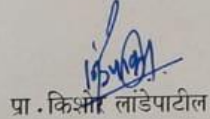 प्रा . किशोर लांडेपाटील